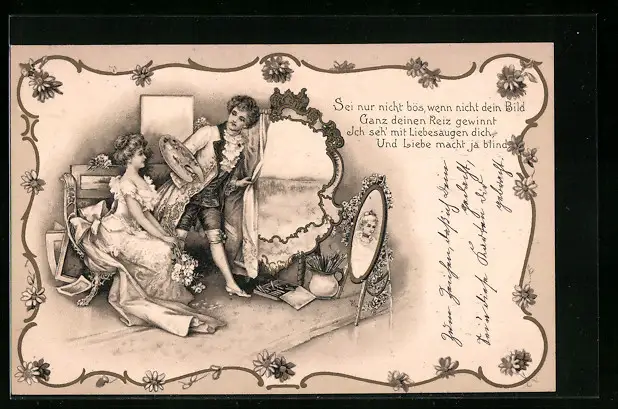 Sei nur nicht bös, wenn nicht dein Bild
Ganz deinen Reiz gewinnt
Ich seh' mit Liebesaugen dich,
Und Liebe macht ja blind.
Zum Zeichen, daß ich deine
gedacht,
diese Karten dir
gebracht.